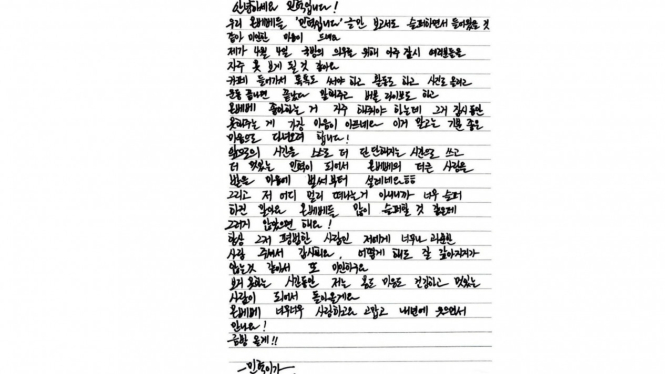 안녕하세요 민혁입니다!
우리 몬베베들 '민혁입니다' 글만 보고서도 슬퍼하면서 들어왔을 것
같아 미안한 마음이 드네요
제가 4월 4일 국방의 의무를 위해 아주 잠시 여러분들을
자주 못 보게 될 것 같아요
카페 들어가서 톡톡도 써야 하고 활동도 하고 사진도 올리고
운동 끝나면 끝났다 말해주고 버블 라이브도 하고
몬베베 좋아하는 거 자주 해줘야 하는데 그거 잠시 동안
못해주는 게 가장 마음이 아프네요 이거 말고는 기분 좋은
마음으로 다녀오려 합니다!
앞으로의 시간을 스스로 더 단단해지는 시간으로 쓰고
더 멋있는 민혁이 되어서 몬베베의 더 큰 사랑을
받을 마음에 벌써부터 설레네요ㅎㅎ
그리고 저 어디 멀리 떠나는 거 아니니까 너무 슬퍼
하진 말아요 몬베베들 많이 슬퍼할 것 같은데
그러지 않았으면 해요!
항상 그저 평범한 사람인 저에게 너무나 과분한
사랑 주셔서 감사해요, 어떻게 해도 다 갚아지지가
않는 것 같아서 또 미안하구요
보지 못하는 시간동안 저는 몸도 마음도 건강하고 멋있는
사람이 되어서 돌아올게요
몬베베 너무너무 사랑하고요 고맙고 내년에 웃으면서
만나요!
금방 올게!!
-민혁이가-